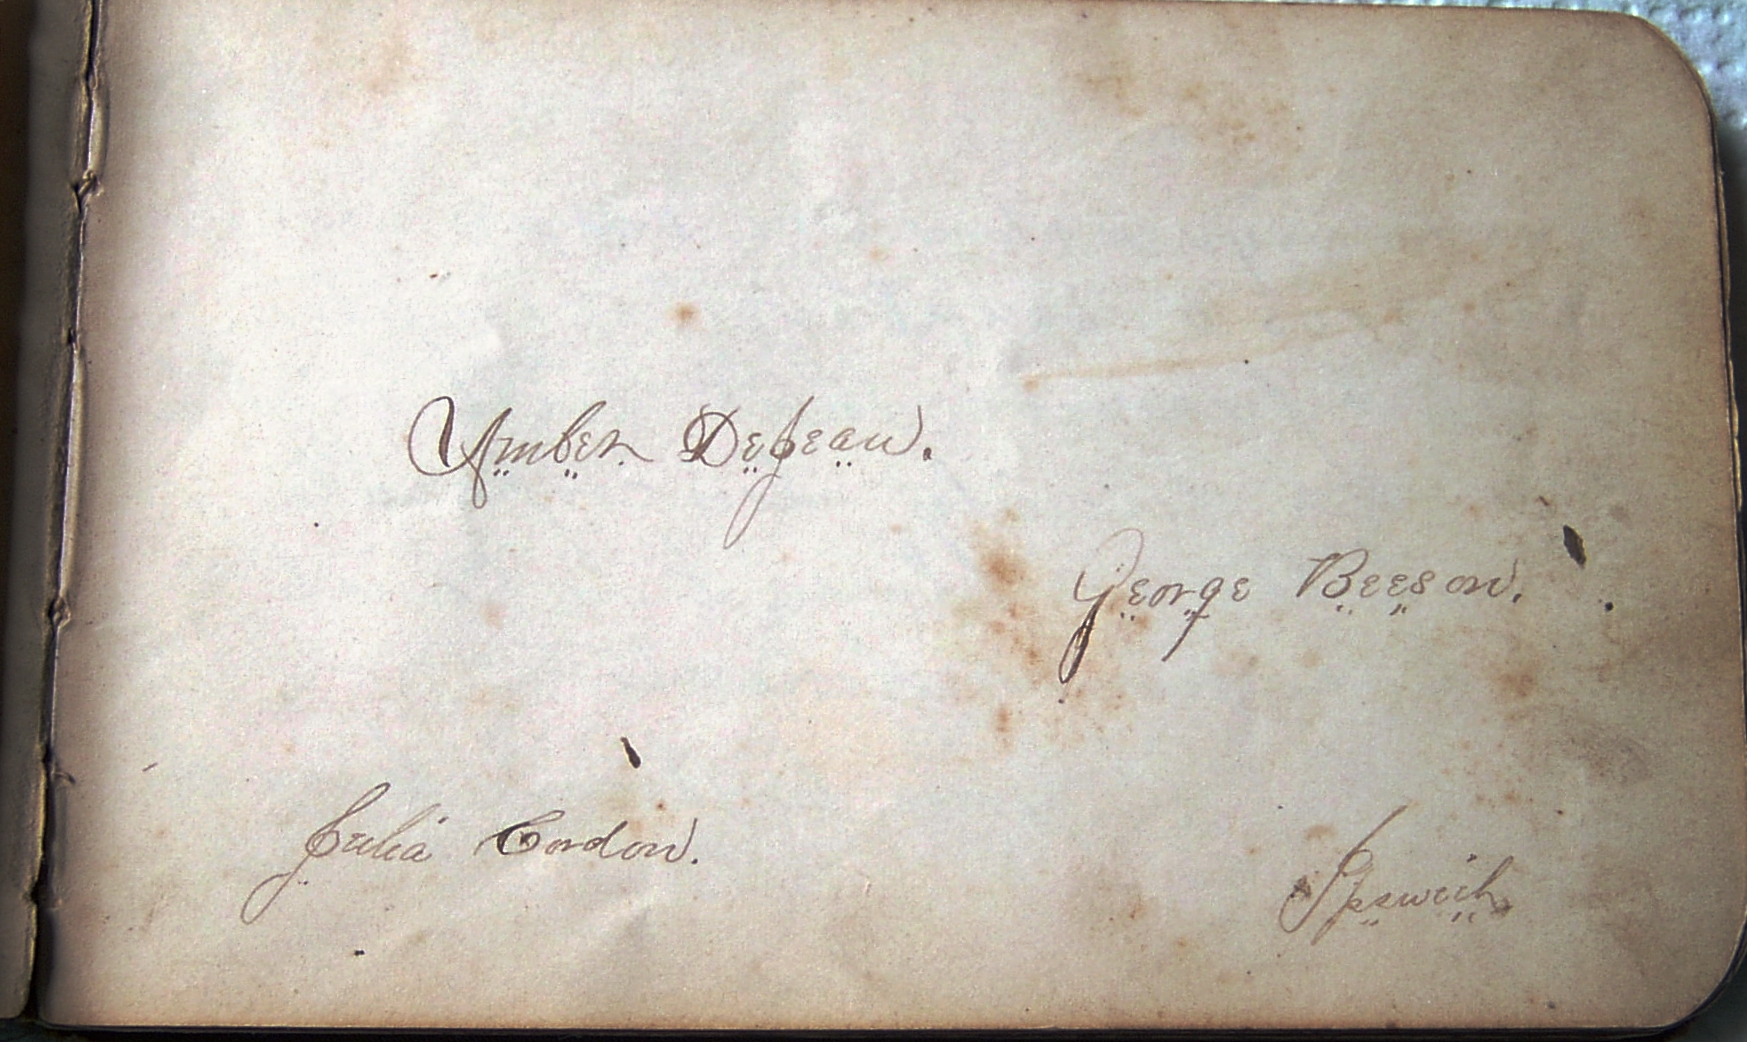 Amber DeJean.
George Beeson.
Julia Cordon.
Ipswich